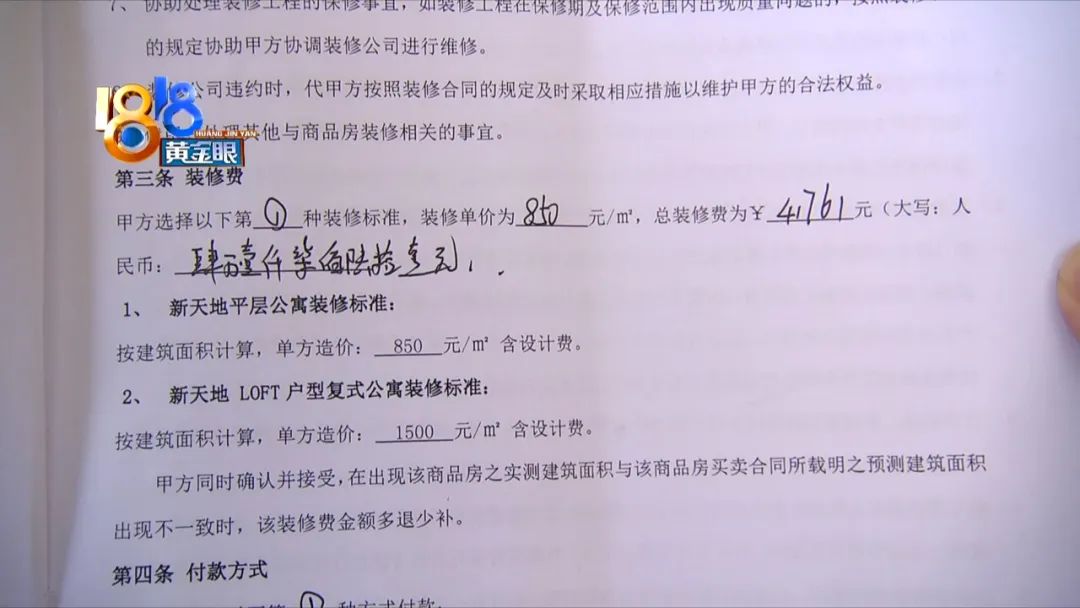 7、协助处理装修工程的保修事宜，如装修工程在保修期及保修范围内出现质量问题的，按照装修
的规定协助甲方协调装修公司进行维修。
公司违约时，代甲方按照装修合同的规定及时采取相应措施以维护甲方的合法权益。
其他与商品房装修相关的事宜。
1818
HUANG JIN YAN
黄金眼
第三条 装修费
甲方选择以下第 ① 种装修标准，装修单价为 850 元/㎡，总装修费为￥ 41761 元（大写：人
民币： 肆万壹仟柒佰陆拾壹元
1、 新天地平层公寓装修标准：
按建筑面积计算，单方造价： 850 元/㎡ 含设计费。
2、 新天地 LOFT 户型复式公寓装修标准：
按建筑面积计算，单方造价： 1500 元/㎡ 含设计费。
甲方同时确认并接受，在出现该商品房之实测建筑面积与该商品房买卖合同所载明之预测建筑面积
出现不一致时，该装修费金额多退少补。
第四条 付款方式
第 ① 种方式付款：